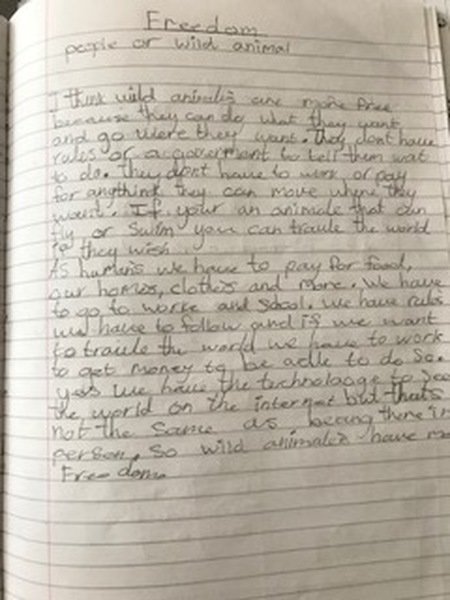 Freedom
people or wild animal
I think wild animals are more free
because they can do what they want
and go were they want. They dont have
rules or a goverment to tell them wat
to do. They dont have to work or pay
for anythink they can move where they
want. If your an animale that can
fly or swim you can traule the world
if they wish.
As humans we have to pay for food,
our homes, clothes and more. We have
to go to worke and school. We have rules
we have to follow and if we want
to traule the world we have to work
to get money to be adle to do so.
yes we have the technologe to see
the world on the internet but that's
not the same as being there in
person. So wild animales have mo
Freedom